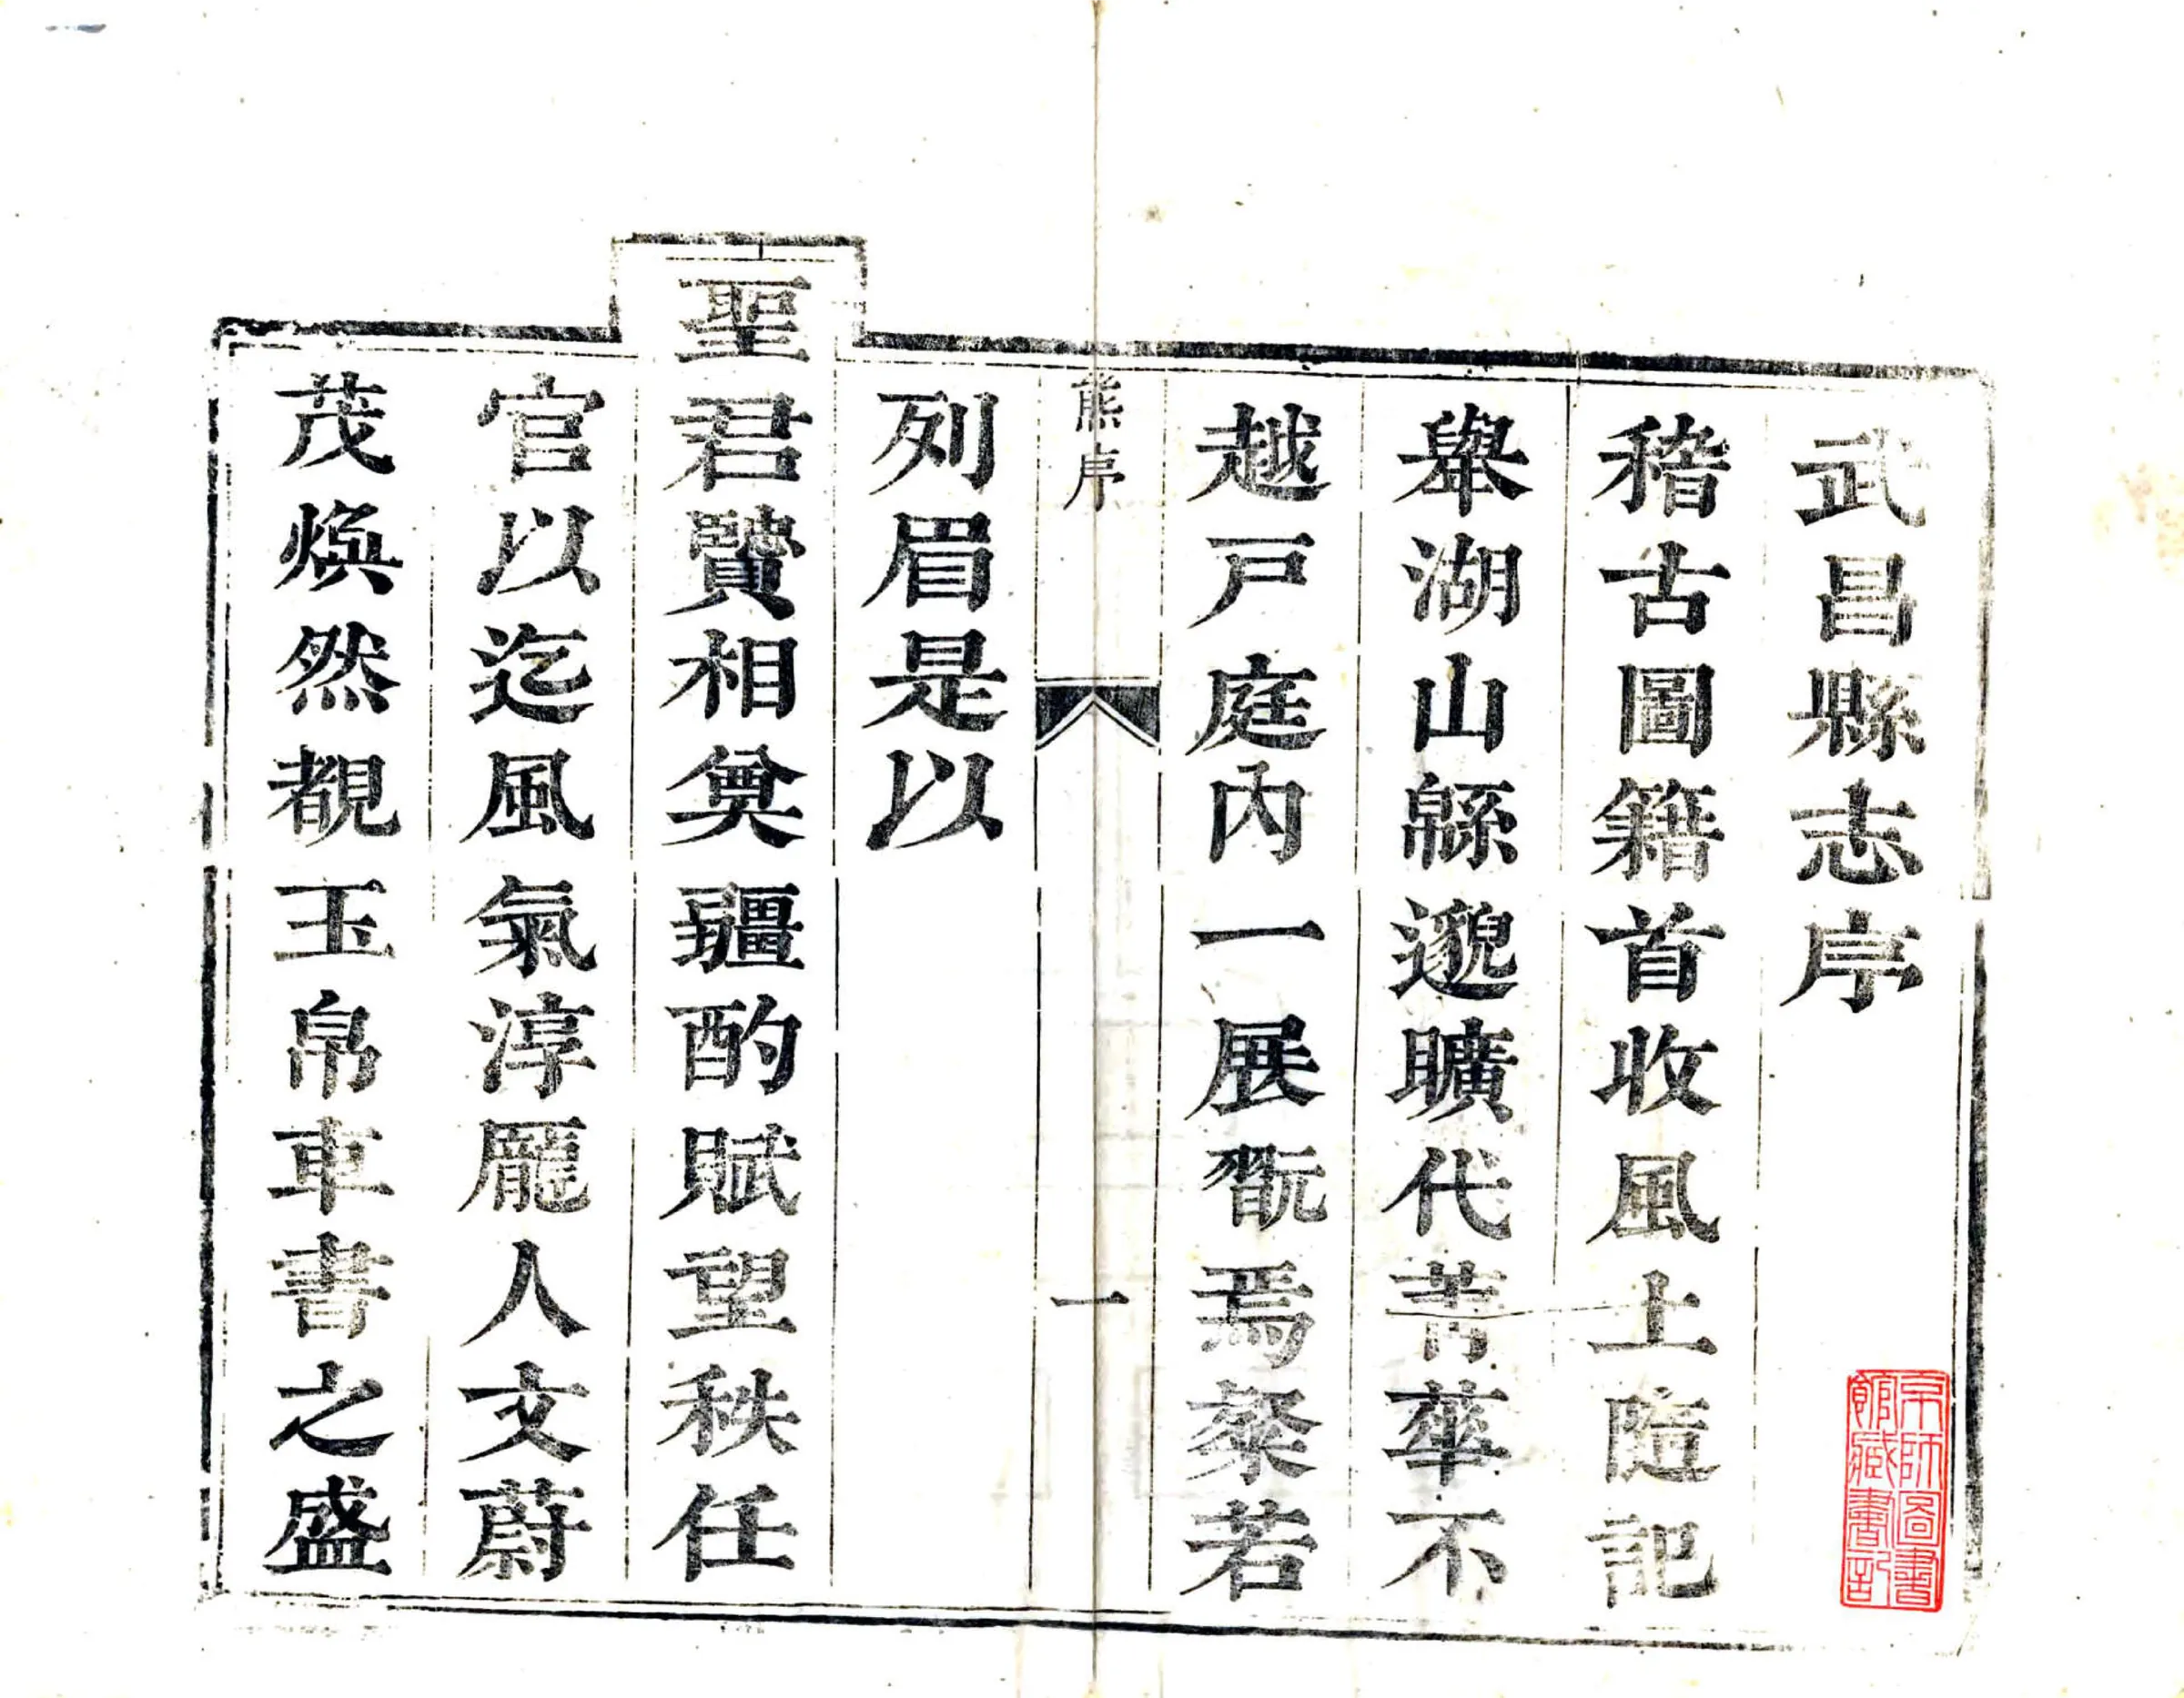 武昌縣志序
稽古圖籍首收風土隨記
舉湖山緜邈曠代菁華不
越戸庭內一展翫焉粲若
熊序
一
列眉是以
聖君賢相奠疆酌賦望秩任
官以迄風氣淳龐人文蔚
茂煥然覩玉帛車書之盛
京師圖書
館藏書記